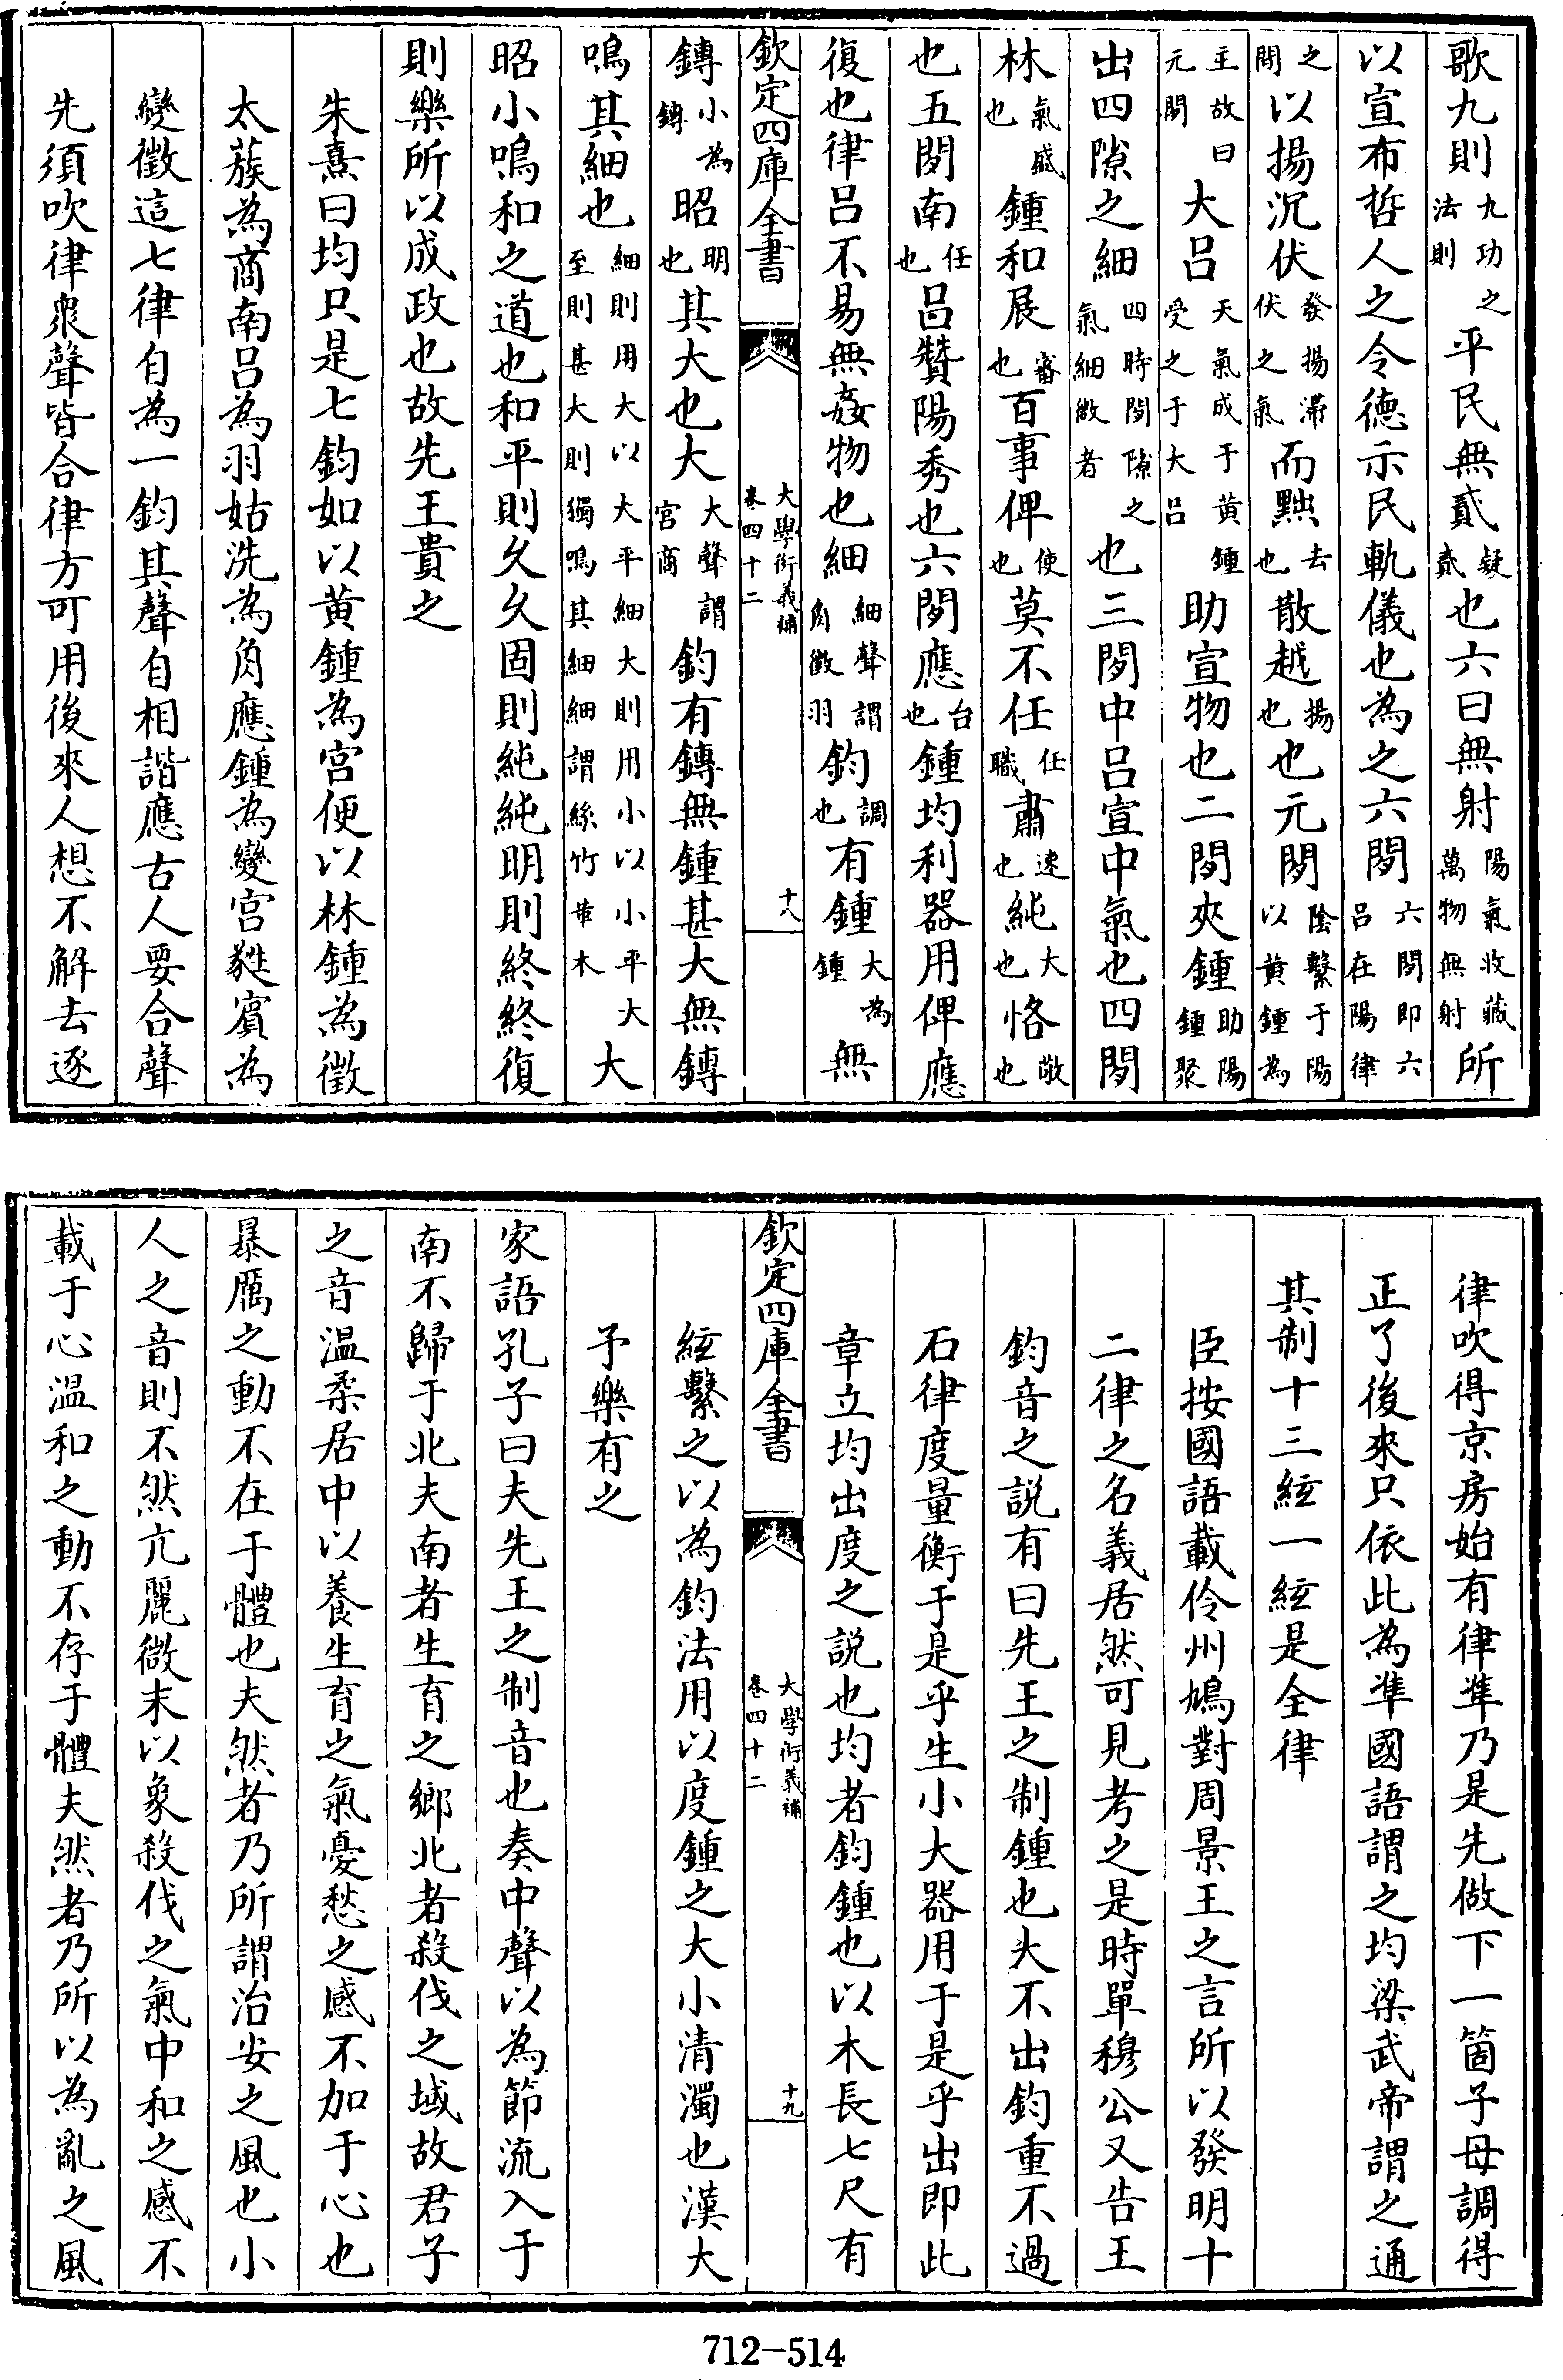 歌九則九功之法則平民無貳疑貳也六曰無射陽氣收藏萬物無射所
以宣布哲人之令德示民軌儀也為之六閒六閒即六呂在陽律
之閒以揚沉伏發揚滯伏之氣而黜去也散越揚也也元閒陰繫于陽以黄鍾為
主故曰元閒大呂天氣成于黄鍾受之于大呂助宣物也二閒夾鍾助陽鍾聚
出四隙之細四時閒隙之氣細微者也三閒中呂宣中氣也四閒
林氣盛也鍾和展審也百事俾使也莫不任任職肅速也純大也恪敬也
也五閒南任也呂贊陽秀也六閒應台也鍾均利器用俾應
復也律呂不易無姦物也細細聲謂角徵羽鈞調也有鍾大為鍾無
欽定四庫全書 大學衍義補卷四十二 十八
鏄小為鏄昭明也其大也大大聲謂宮商鈞有鏄無鍾甚大無鏄
鳴其細也細則用大以大平細大則用小以小平大至則甚大則獨鳴其細細謂絲竹革木大
昭小鳴和之道也和平則久久固則純純明則終終復
則樂所以成政也故先王貴之
朱熹曰均只是七鈞如以黄鍾為宮便以林鍾為徵
太蔟為商南呂為羽姑洗為角應鍾為變宮蕤賓為
變徵這七律自為一鈞其聲自相諧應古人要合聲
先須吹律衆聲皆合律方可用後來人想不解去逐
律吹得京房始有律凖乃是先做下一箇子母調得
正了後來只依此為凖國語謂之均梁武帝謂之通
其制十三絃一絃是全律
臣按國語載伶州鳩對周景王之言所以發明十
二律之名義居然可見考之是時單穆公又告王
鈞音之説有曰先王之制鍾也大不出鈞重不過
石律度量衡于是乎生小大器用于是乎出即此
章立均出度之説也均者鈞鍾也以木長七尺有
欽定四庫全書 大學衍義補卷四十二 十九
絃繫之以為鈞法用以度鍾之大小清濁也漢大
予樂有之
家語孔子曰夫先王之制音也奏中聲以為節流入于
南不歸于北夫南者生育之鄉北者殺伐之域故君子
之音温柔居中以養生育之氣憂愁之感不加于心也
暴厲之動不在于體也夫然者乃所謂治安之風也小
人之音則不然亢麗微末以象殺伐之氣中和之感不
載于心温和之動不存于體夫然者乃所以為亂之風
712-514